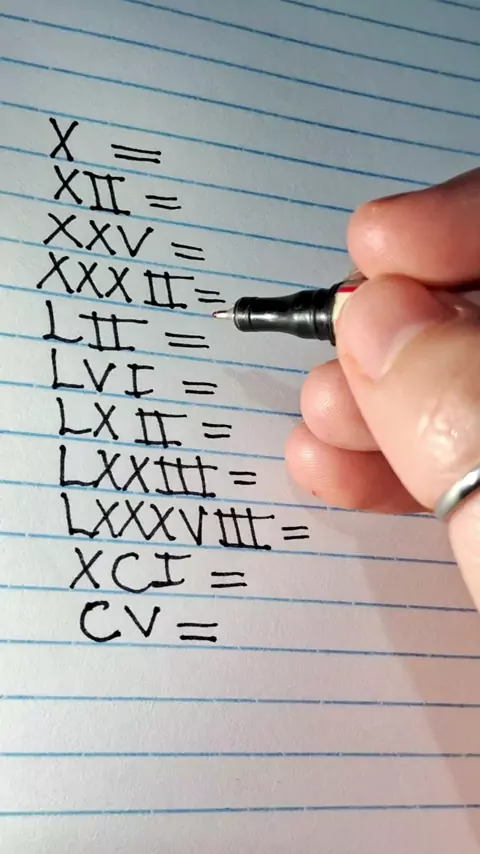 X =
XII =
XXV =
XXXII =
LII =
LVI =
LXII =
LXXIII =
LXXXVIII =
XCI =
CV =